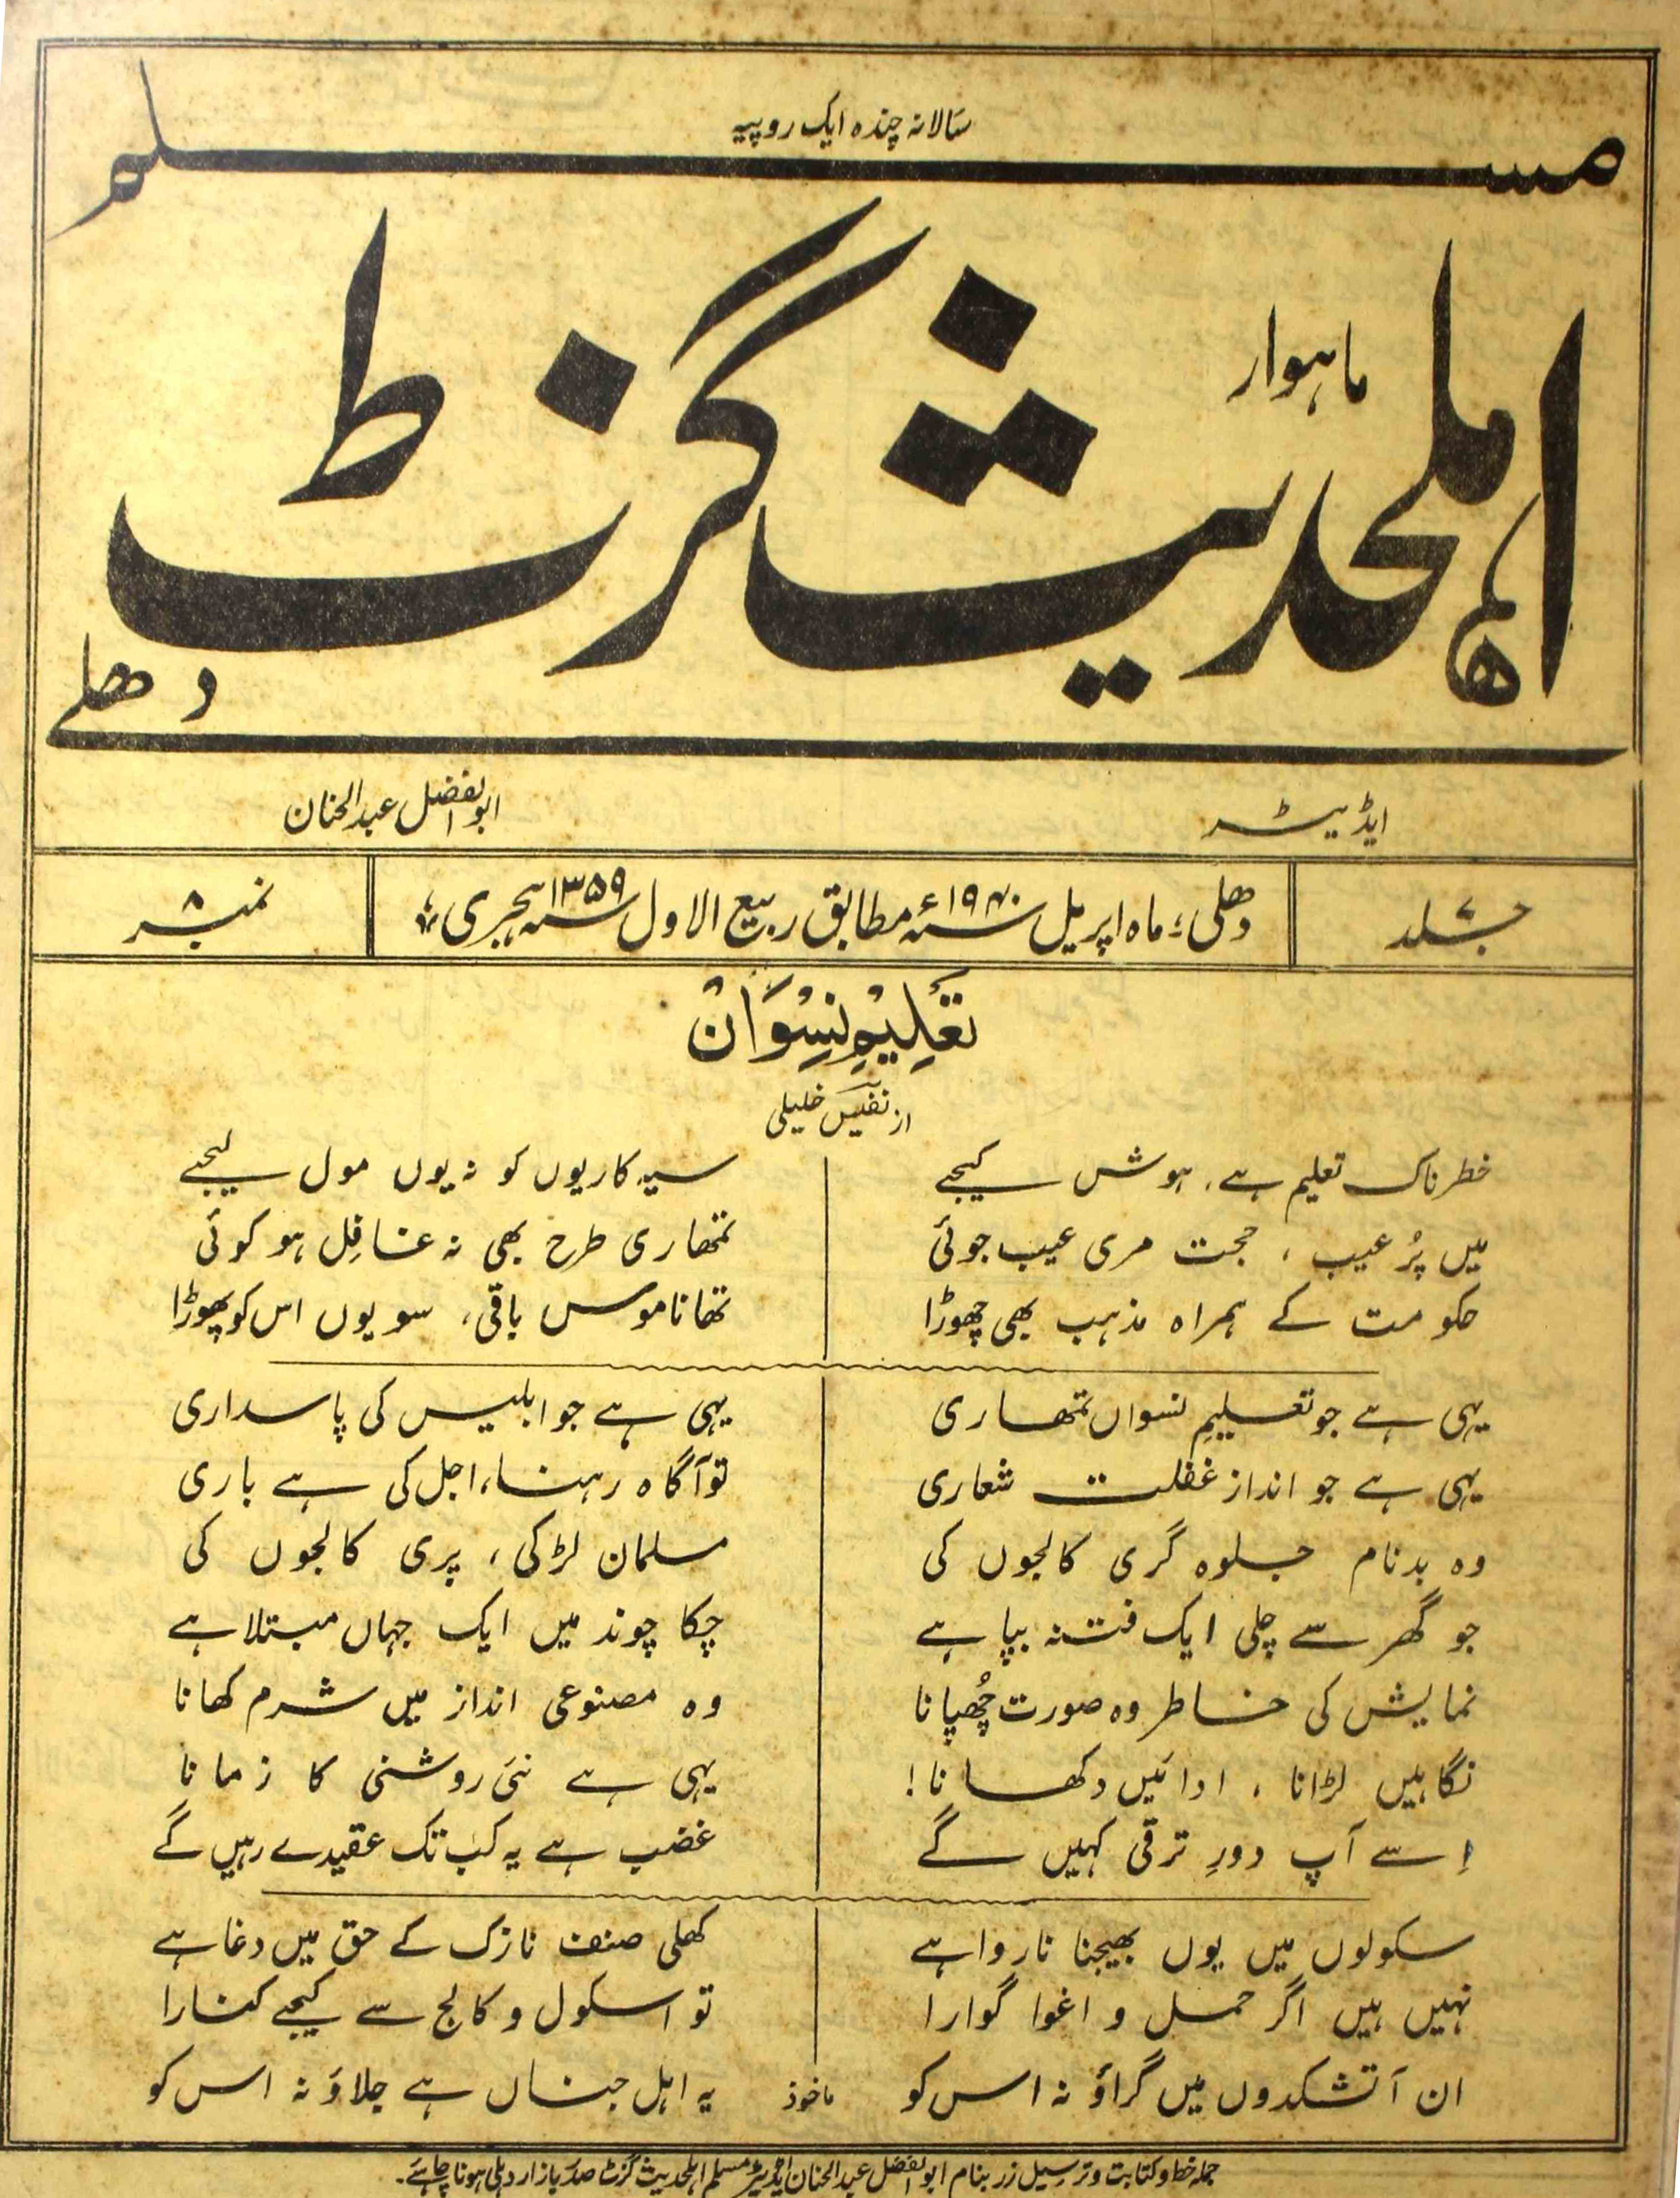 سالانہ چندہ ایک روپیہ
مسلم
ماہوار
اہلحدیث گزٹ
دھلی
ایڈیٹر
ابوالفضل عبدالحنان
جلد ۷
دھلی؛ ماہ اپریل سنہ ۱۹۴۰ء مطابق ربیع الاول سنہ ۱۳۵۹ ہجری؛
نمبر ۸
تعلیمِ نسواں
از نفیس خلیلی
خطرناک تعلیم ہے، ہوش کیجے سیہ کاریوں کو نہ یوں مول لیجے
میں پُر عیب، حجت مری عیب جوئی تمھاری طرح بھی نہ غافِل ہو کوئی
حکومت کے ہمراہ مذہب بھی چھوڑا تھا ناموس باقی، سو یوں اس کو پھوڑا
یہی ہے جو تعلیمِ نسواں تمھاری یہی ہے جو ابلیس کی پاسداری
یہی ہے جو انداز غفلت شعاری تو آگاہ رہنا، اجل کی ہے باری
وہ بدنام جلوہ گری کالجوں کی مسلمان لڑکی، پری کالجوں کی
جو گھر سے چلی ایک فتنہ بپا ہے چکا چوند میں ایک جہاں مبتلا ہے
نمایش کی خاطر وہ صورت چُھپانا وہ مصنوعی انداز میں شرم کھانا
نگاہیں لڑانا، ادائیں دکھانا! یہی ہے نئی روشنی کا زمانا
اِسے آپ دورِ ترقی کہیں گے غضب ہے یہ کب تک عقیدے رہیں گے
سکولوں میں یوں بھیجنا ناروا ہے کھلی صنف نازک کے حق میں دغا ہے
نہیں ہیں اگر حمل و اغوا گوارا تو اسکول و کالج سے کیجے کنارا
ان آتشکدوں میں گراؤ نہ اس کو ماخوذ یہ اہل جناں ہے جلاؤ نہ اس کو
جملہ خط و کتابت و ترسیل زر بنام ابوالفضل عبدالحنان ایڈیٹر مسلم اہلحدیث گزٹ صدر بازار دہلی ہونا چاہئے۔